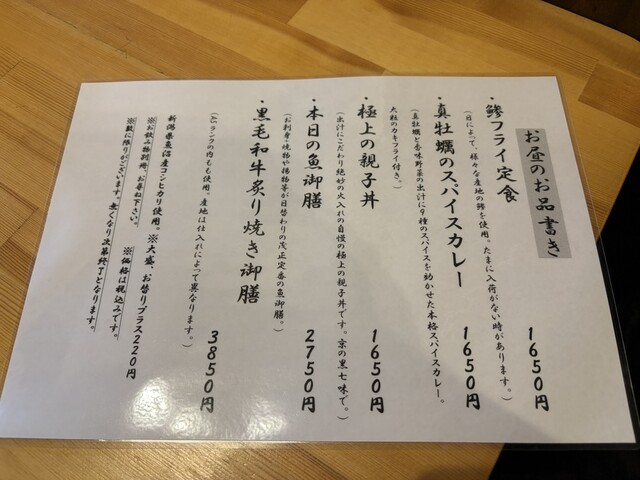 お昼のお品書き
・鯵フライ定食 1650円
(日によって、様々な産地の鯵を使用。たまに入荷がない時があります。)
・真牡蠣のスパイスカレー 1650円
(真牡蠣と香味野菜の出汁に9種のスパイスを効かせた本格スパイスカレー。
大粒のカキフライ付き。)
・極上の親子丼 1650円
(出汁にこだわり絶妙の火入れの自慢の極上の親子丼です。京の黒七味で。)
・本日の魚御膳 2750円
(お刺身・焼物や揚物等が日替わりの茂正定番の魚御膳。)
・黒毛和牛炙り焼き御膳 3850円
(A5ランクの内ももを使用。産地は仕入れによって異なります。)
新潟県魚沼産コシヒカリ使用。※大盛、お替りプラス220円
※お飲み物別冊、お尋ね下さい。 ※価格は税込みです。
※数に限りがございます。無くなり次第終了となります。